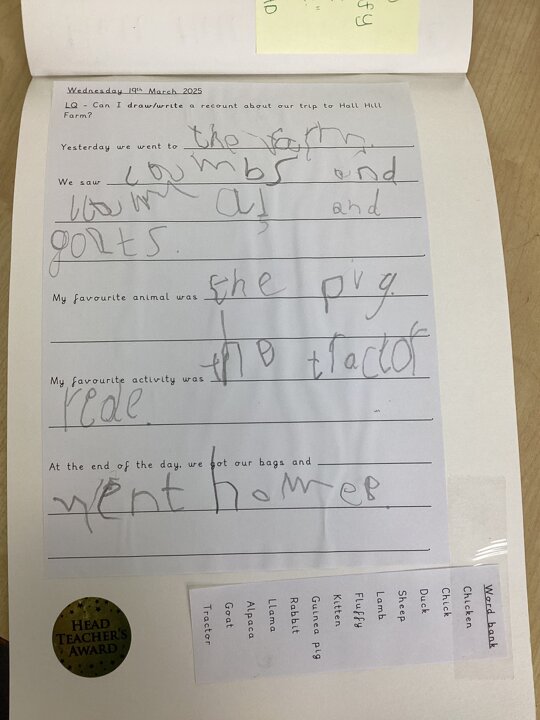 Wednesday 19th March 2025
LQ - Can I draw/write a recount about our trip to Hall Hill
Farm?
Yesterday we went to the farm.
We saw and
and
goats.
My favourite animal was the pig.
My favourite activity was the tractor
rede.
At the end of the day, we got our bags and
went home
Word bank
Chicken
Chick
Duck
Sheep
Lamb
Fluffy
Kitten
Guinea pig
Rabbit
Llama
Alpaca
Goat
Tractor
HEAD
TEACHER'S
AWARD